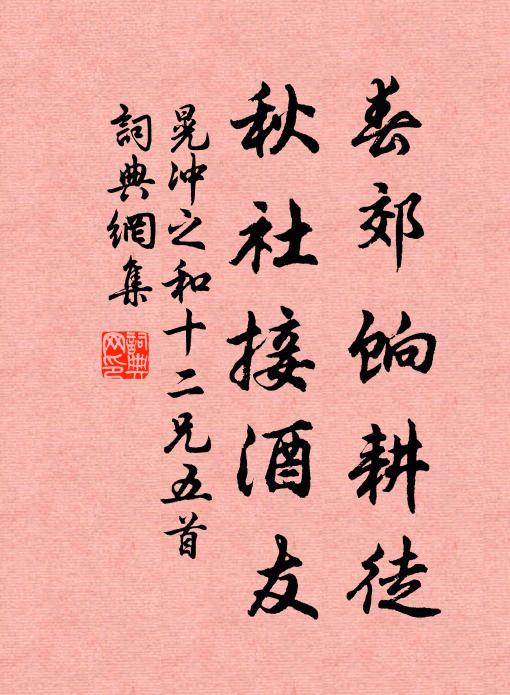 春郊餉耕徒
秋社接酒友
晁沖之和十二兄五首
詞典網集
詞典網印